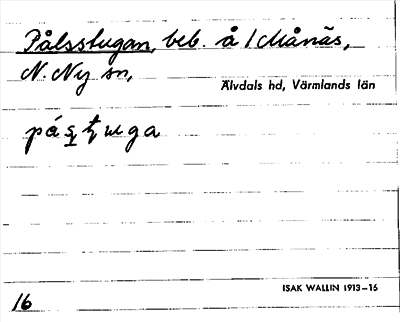 Pålsstugan, beb. å 1 Månäs,
N. Ny sn,
Älvdals hd, Värmlands län
ISAK WALLIN 1913–16
16